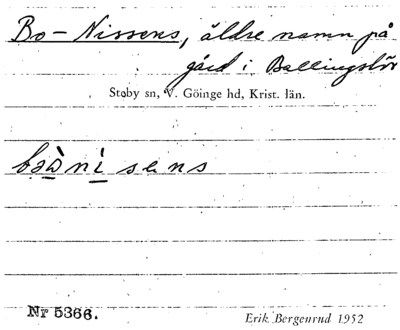 Bo-Nissens, äldre namn på
gård i Ballingslöv
Stoby sn, V. Göinge hd, Krist. län.
sens
Nr 5366.
Erik Bergenrud 1952